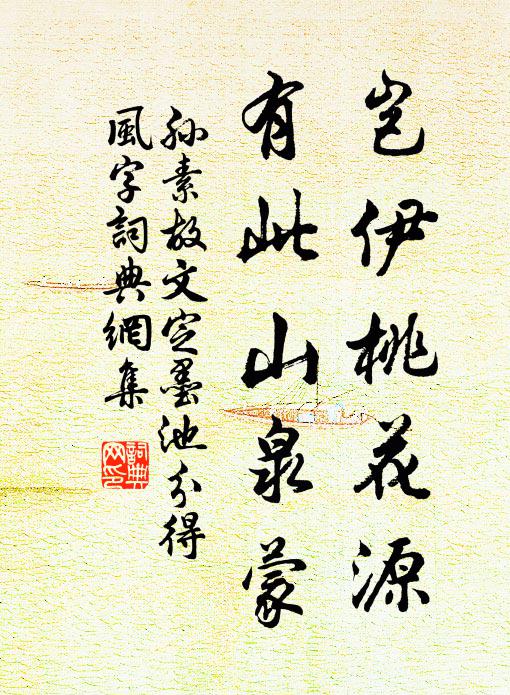 岂伊桃花源
有此山泉蒙
孙素故文定墨池分得
風字詞典網集
詞典網印